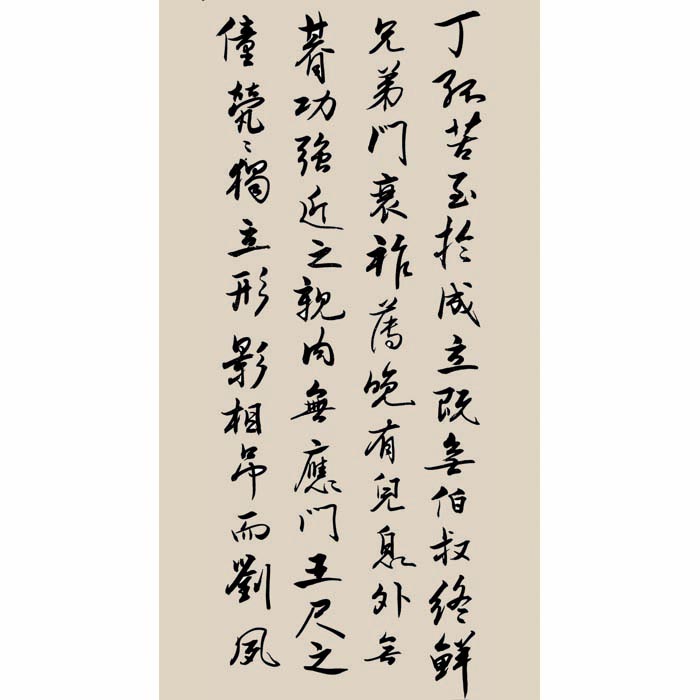 丁孤苦至於成立既無伯叔終鮮
兄弟門衰祚薄晚有兒息外無
朞功強近之親内無應門王尺之
僮煢々獨立形影相吊而劉夙